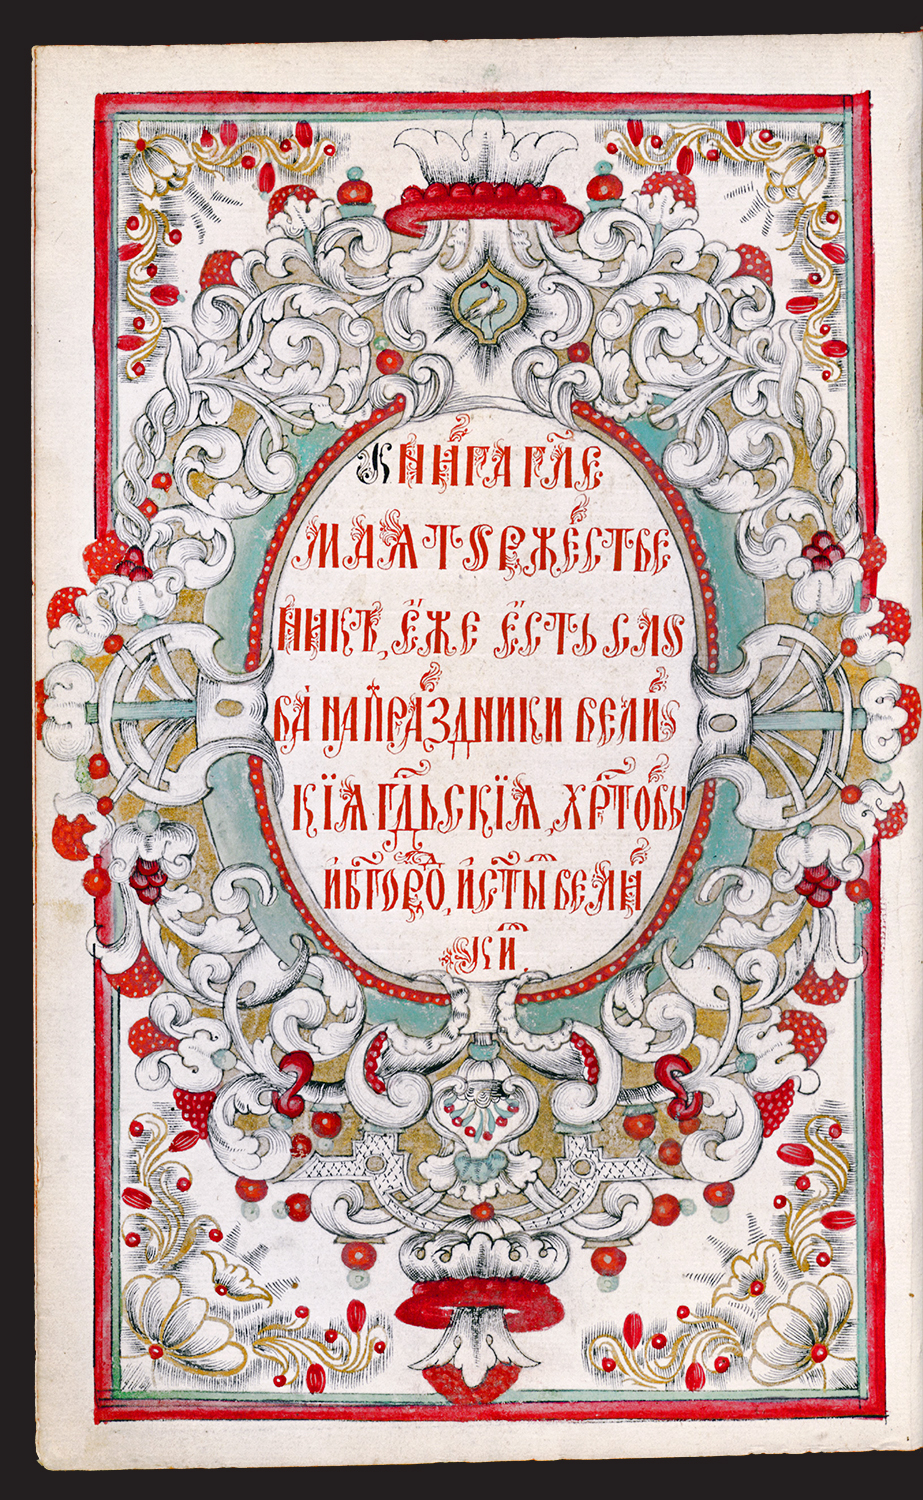 Кни́га гл҃е
мая торже́стве
никъ, е́же е́сть сло
ва на пра́здники вели
кія гдⷭ҇ьскія, хрⷭ҇товы
и бг҃оро, и ст҃ы вели
ки